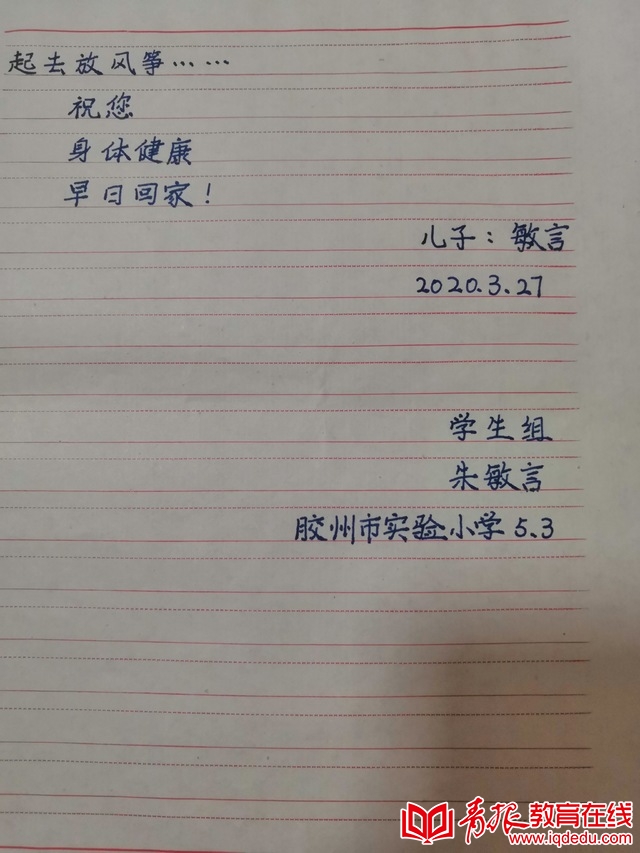 起去放风筝……
祝您
身体健康
早日回家！
儿子：敏言
2020.3.27
学生组
朱敏言
胶州市实验小学 5.3
青报教育在线
www.iqdedu.com